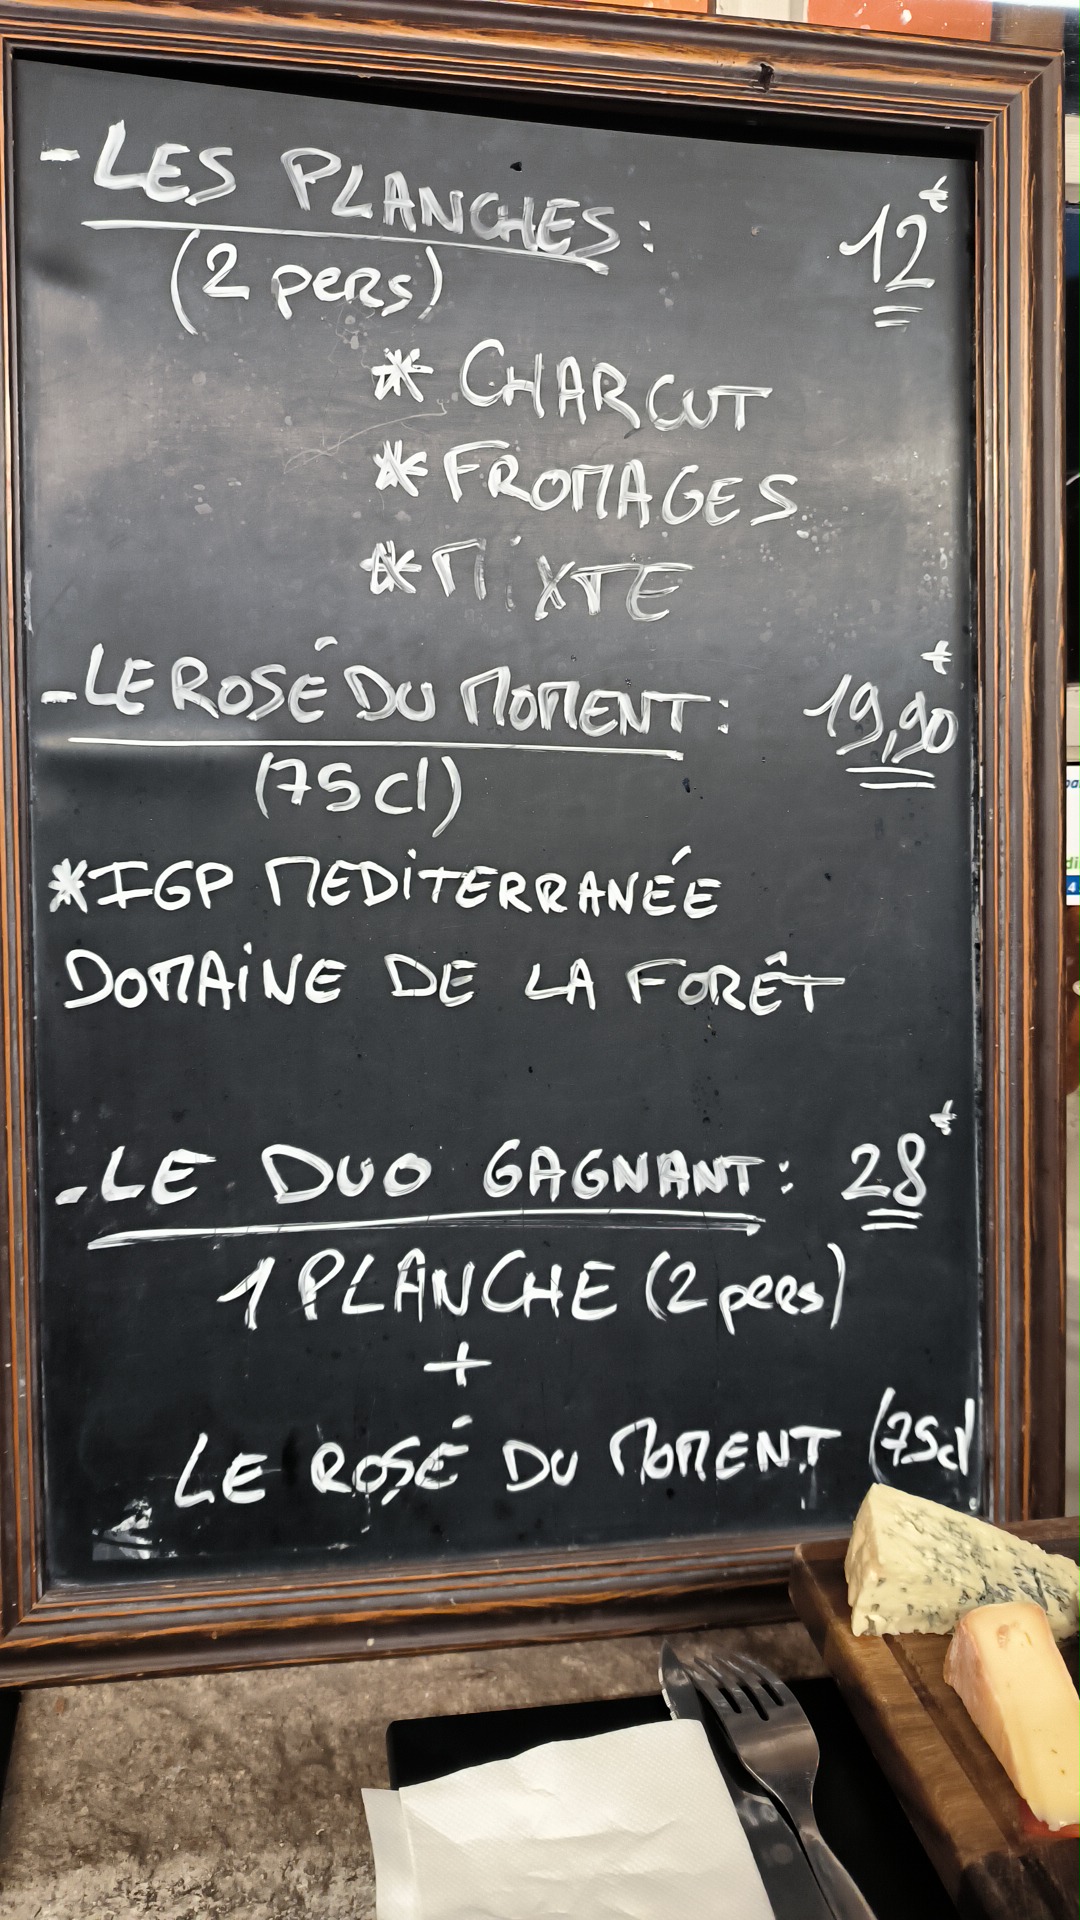 - LES PLANCHES : 12€
(2 pers)
* CHARCUT
* FROMAGES
* MiXTE
- LE ROSÉ DU MOMENT : 19,90€
(75cl)
* IGP MEDiTERRANÉE
DOMAiNE DE LA FORÊT
- LE DUO GAGNANT : 28€
1 PLANCHE (2 pers)
+
LE ROSÉ DU MOMENT (75cl